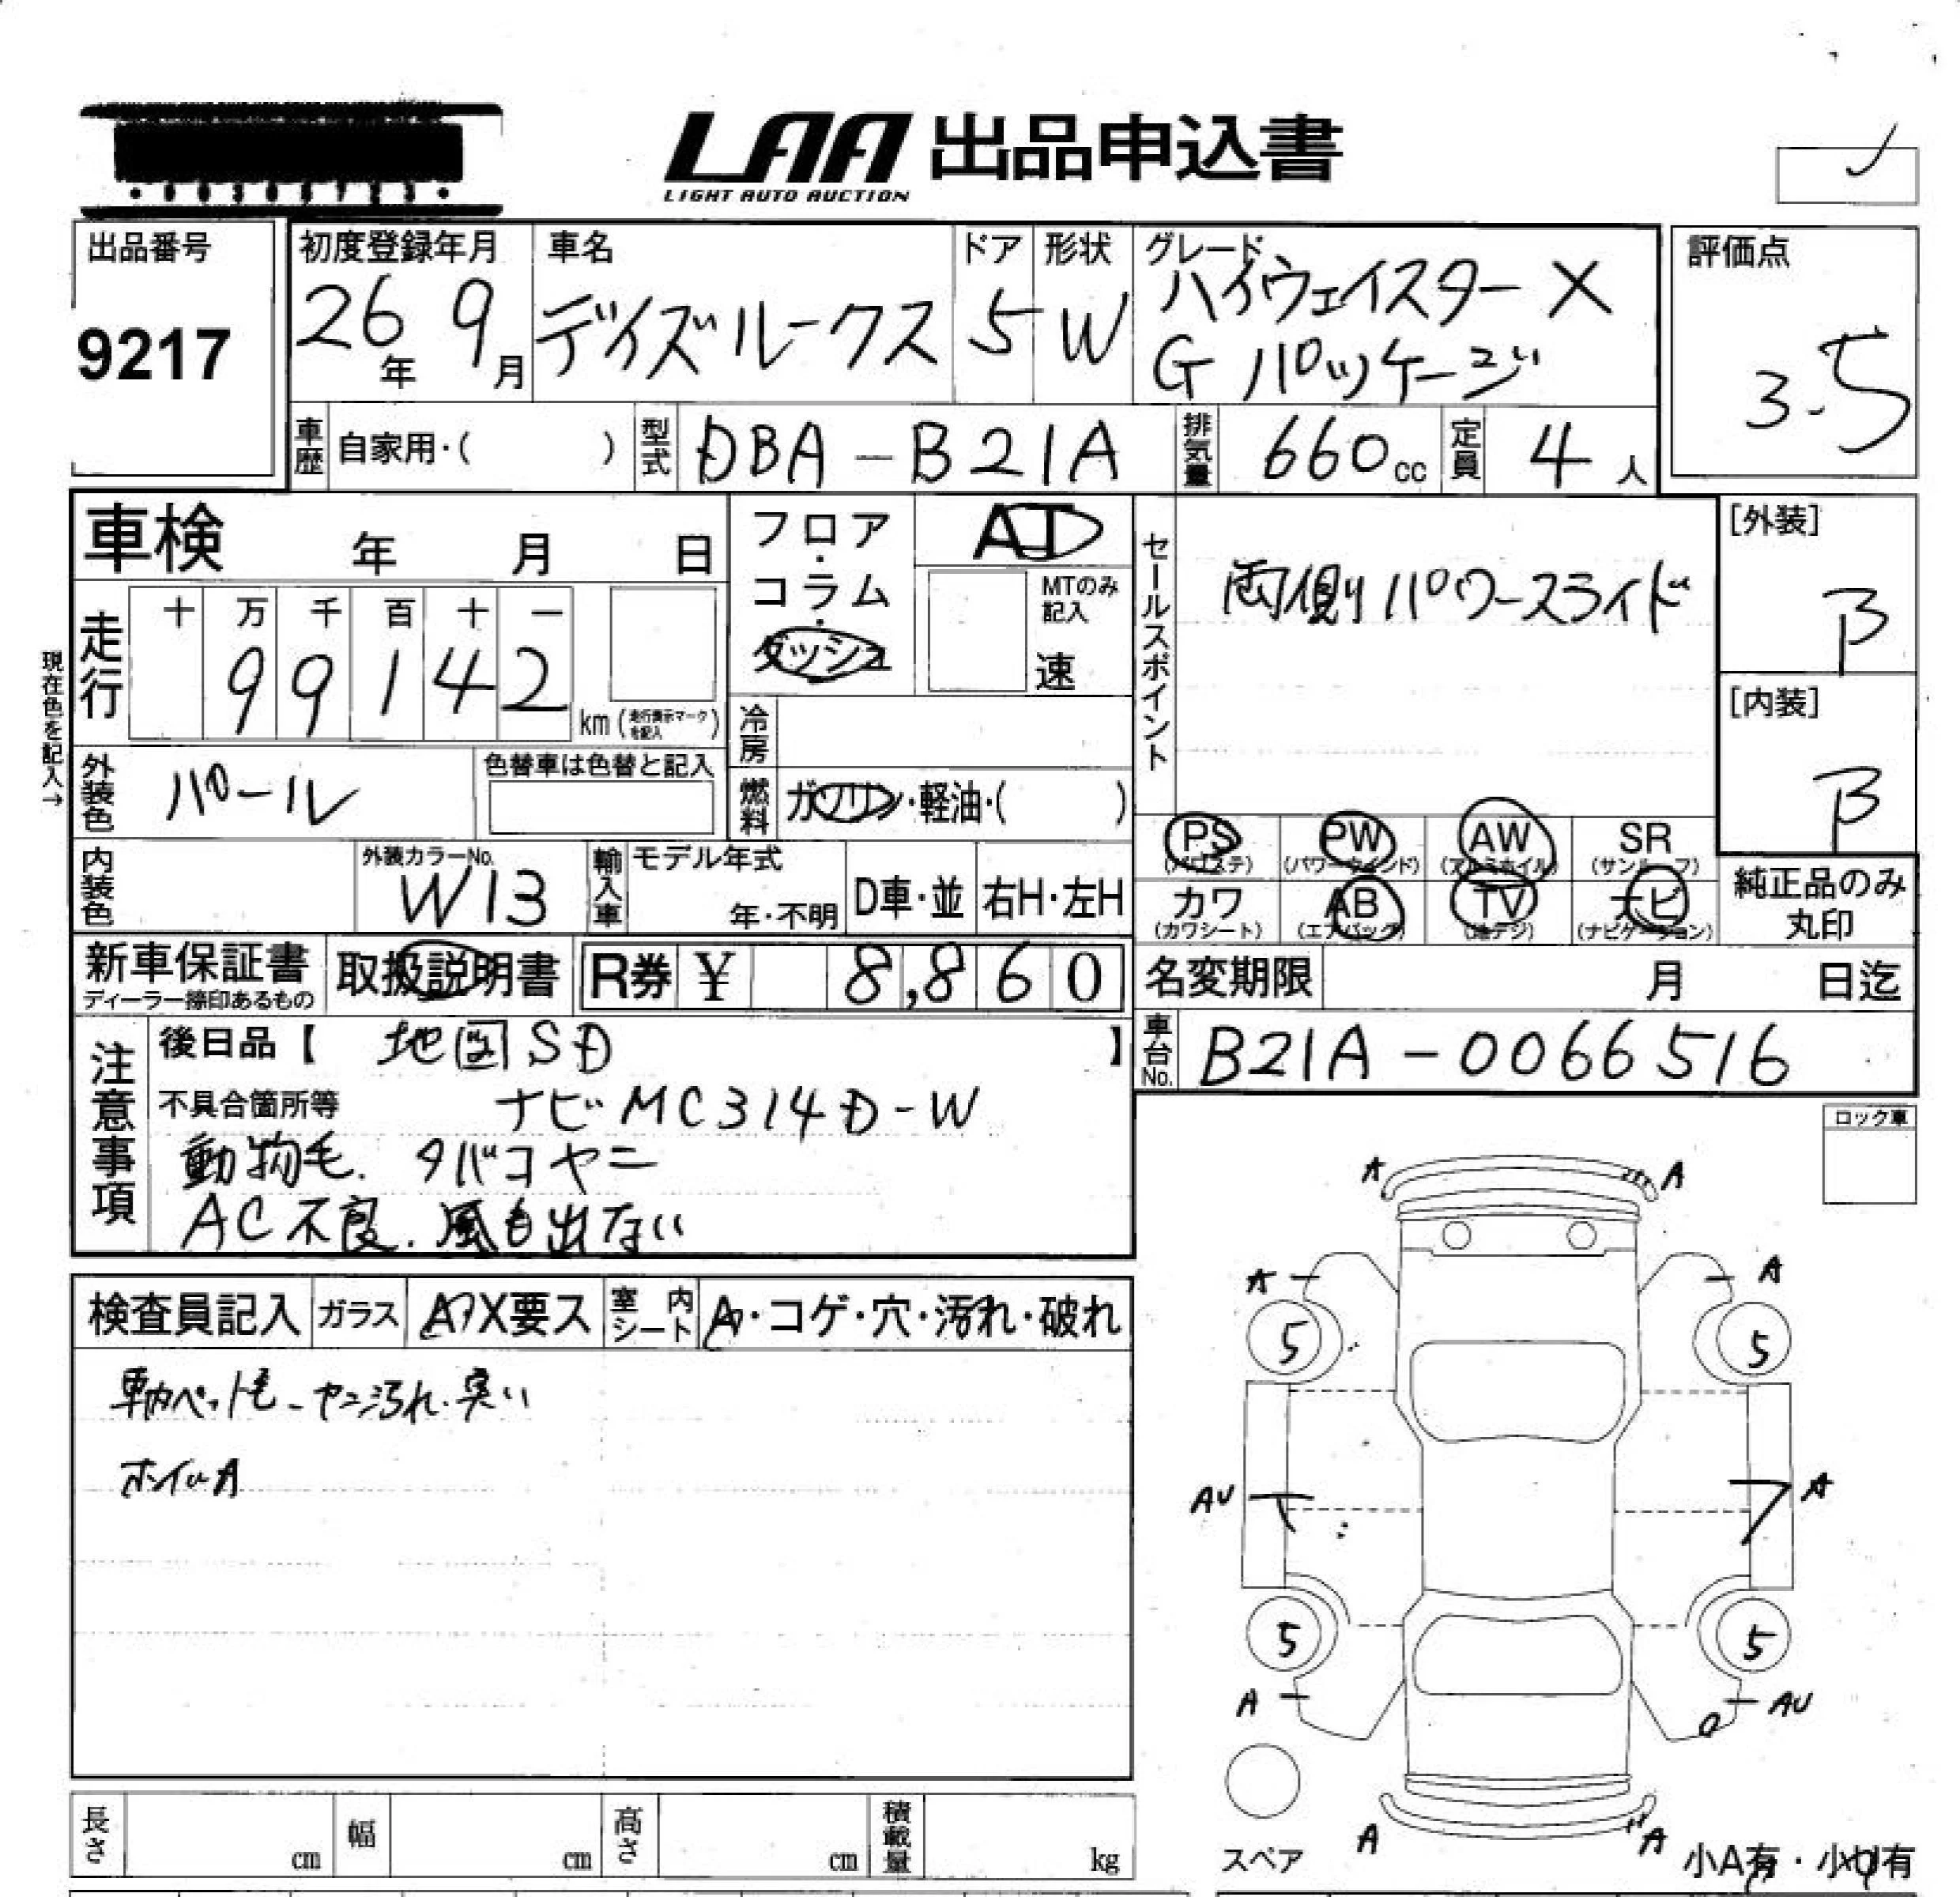 LAA 出品申込書
LIGHT AUTO AUCTION
出品番号
9217
初度登録年月
26年 9月
車名
デイズルークス
ドア
5
形状
W
グレード
ハイウェイスター X
G パッケージ
評価点
3.5
車歴 自家用・( )
型式 DBA-B21A
排気量 660cc
定員 4人
車検 年 月 日
フロア・コラム・ダッシュ
AT
MTのみ記入
速
セールスポイント
両側パワースライド
[外装]
B
[内装]
B
現在色を記入→
走行
十 万 千 百 十 一
9 9 1 4 2
km (走行表示マークを記入)
冷房
外装色 パール
色替車は色替と記入
燃料 ガソリン・軽油・( )
PS (パワステ)
PW (パワーウィンド)
AW (アルミホイル)
SR (サンルーフ)
カワ (カワシート)
AB (エアバッグ)
TV (地デジ)
ナビ (ナビゲーション)
純正品のみ丸印
内装色
外装カラーNo. W13
輸入車
モデル年式
年・不明
D車・並
右H・左H
新車保証書
ディーラー捺印あるもの
取扱説明書
R券 ¥ 8,860
名変期限 月 日迄
注意事項
後日品【 地図SD 】
車台No. B21A-0066516
不具合箇所等 ナビ MC314D-W
動物毛. タバコヤニ
AC不良. 風も出ない
ロック車
検査員記入
ガラス
A・X要ス
室内シート
A・コゲ・穴・汚れ・破れ
車内ペット毛-ヤニ汚れ.臭い
ホイルA
A A
A A
5 5
AU A
5 5
A AU
A A
スペア
小A有・小U有
長さ cm
幅 cm
高さ cm
積載量 kg